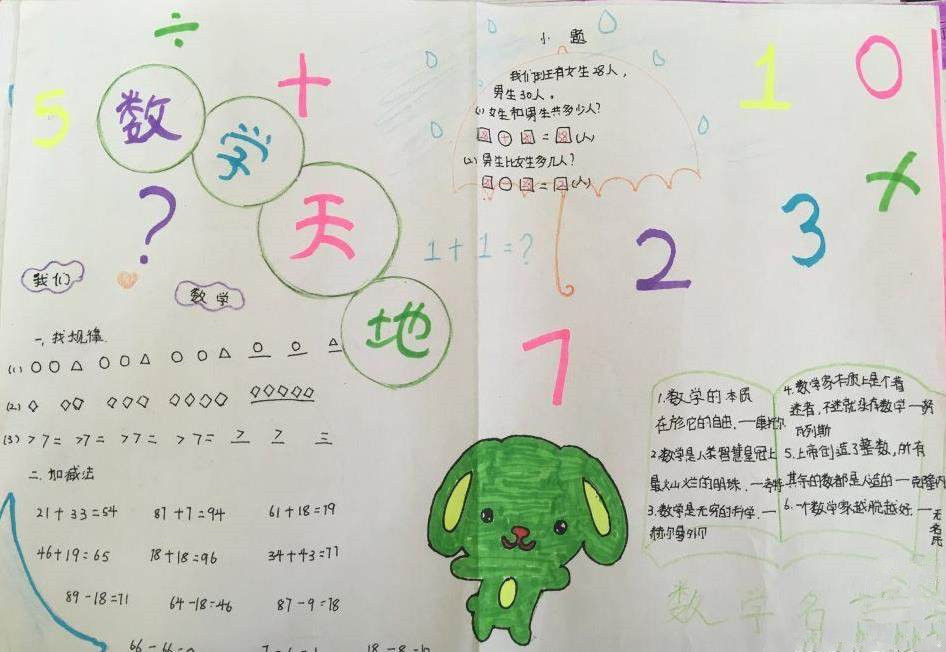 数学天地
÷
+
5
?
小题
我们班有女生28人，
男生30人。
(1)女生和男生共多少人?
28+30=58(人)
(2)男生比女生多几人?
=2(人)
1+1=?
1
0
×
2
3
7
我们
数学
一、找规律
(1)○○△ ○○△ ○○△ ○ ○ △
(2)◇ ◇◇ ◇◇◇ ◇◇◇◇ ◇◇◇◇◇
(3)>7= >7= >7= >7= > 7 =
二、加减法
21+33=54 87+7=94 61+18=79
46+19=65 78+18=96 34+43=77
89-18=71 64-18=46 87-9=78
1.数学的本质
在於它的自由.一康托尔
2数学是人类智慧皇冠上
最灿烂的明珠.一考特
3.数学是无穷的科学.一
赫尔曼外尔
4.数学家本质上是个着
迷者,不迷就没有数学一努
瓦列斯
5.上帝创造了整数,所有
其余的数都是人造的一克隆内
6.一个数学家越脱越好一无名氏
数学名